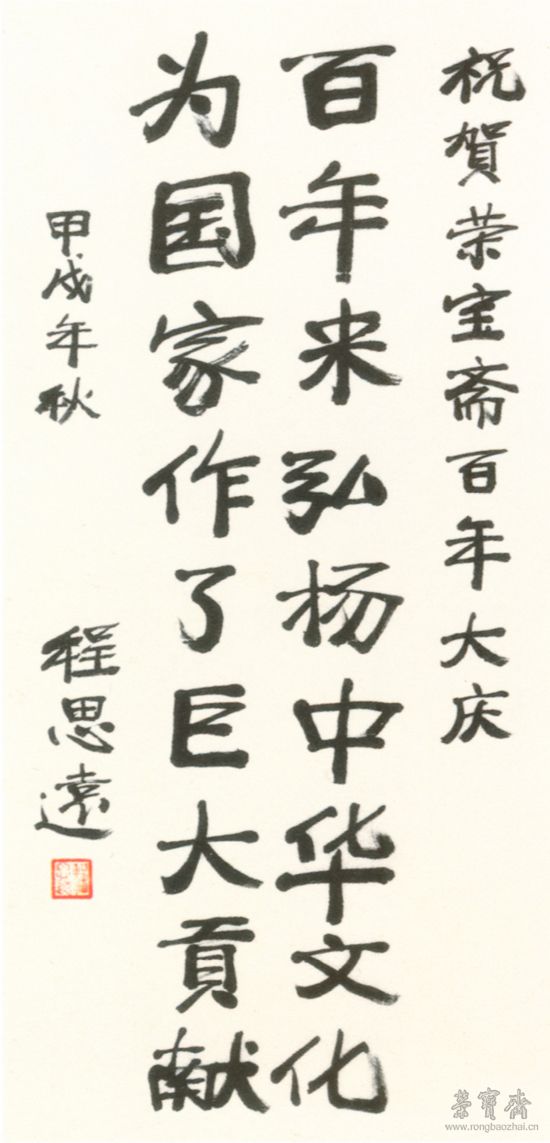 祝賀荣宝斋百年大庆
百年来弘杨中华文化
为国家作了巨大貢献
甲戌年秋
程思遠
荣寶齋
www.rongbaozhai.cn